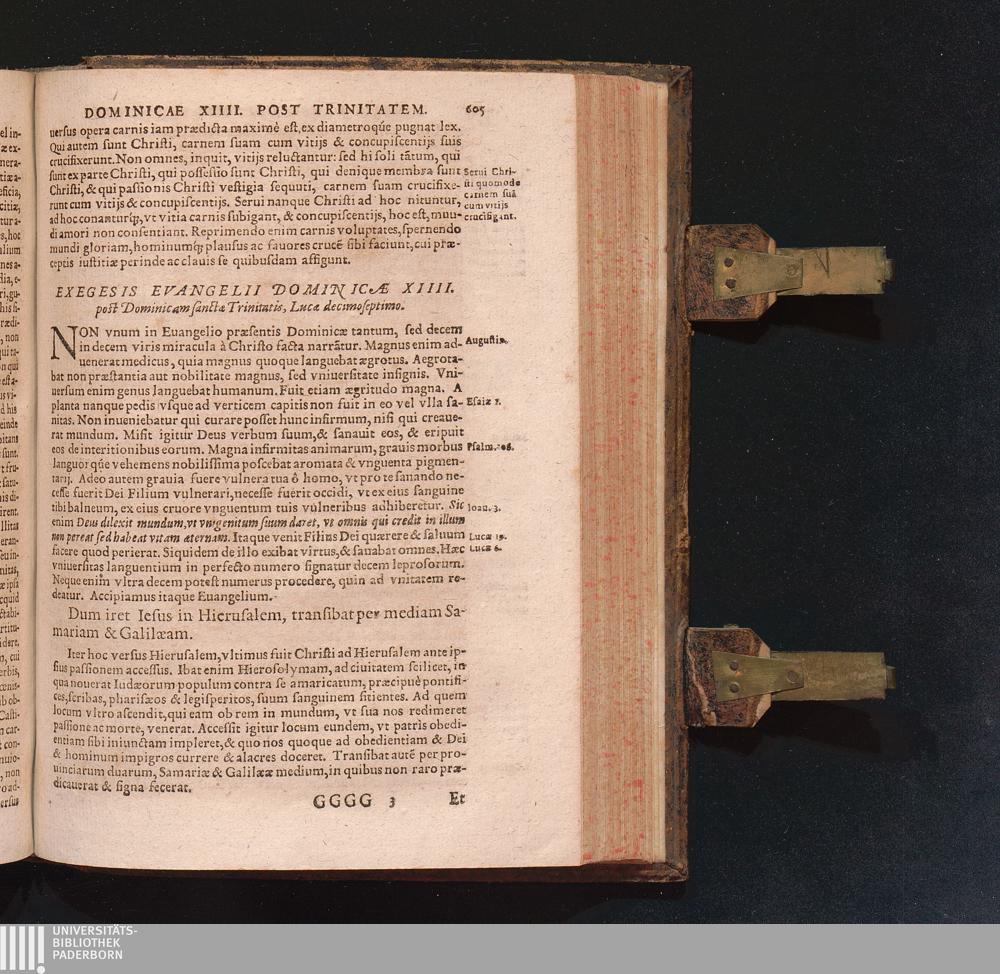 DOMINICAE XIIII. POST TRINITATEM. 605
uersus opera carnis iam prædicta maximè est, ex diametroq́ue pugnat lex.
Qui autem sunt Christi, carnem suam cum vitijs & concupiscentijs suis
crucifixerunt. Non omnes, inquit, vitijs reluctantur: sed hi soli tãtum, qui
sunt ex parte Christi, qui possessio sunt Christi, qui denique membra sunt
Christi, & qui passionis Christi vestigia sequuti, carnem suam crucifixe-
runt cum vitijs & concupiscentijs. Serui nanque Christi ad hoc nituntur,
ad hoc conanturq́;, vt vitia carnis subigant, & concupiscentijs, hoc est, mun-
di amori non consentiant. Reprimendo enim carnis voluptates, spernendo
mundi gloriam, hominumq́; plausus ac fauores crucẽ sibi faciunt, cui præ-
ceptis iustitiæ perinde ac clauis se quibusdam affigunt.
Serui Chri-
sti quomodo
carnem suã
cum vitijs
crucifigant.
EXEGESIS EVANGELII DOMINICÆ XIIII.
post Dominicam sanctæ Trinitatis, Lucæ decimoseptimo.
NON vnum in Euangelio præsentis Dominicæ tantum, sed decem
in decem viris miracula à Christo facta narrãtur. Magnus enim ad-
uenerat medicus, quia magnus quoque languebat ægrotus. Aegrota-
bat non præstantia aut nobilitate magnus, sed vniuersitate insignis. Vni-
uersum enim genus languebat humanum. Fuit etiam ægritudo magna. A
planta nanque pedis vsque ad verticem capitis non fuit in eo vel vlla sa-
nitas. Non inueniebatur qui curare posset hunc infirmum, nisi qui creaue-
rat mundum. Misit igitur Deus verbum suum, & sanauit eos, & eripuit
eos de interitionibus eorum. Magna infirmitas animarum, grauis morbus
languor q́ue vehemens nobilissima poscebat aromata & vnguenta pigmen-
tarij. Adeo autem grauia fuere vulnera tua ô homo, vt pro te sanando ne-
cesse fuerit Dei Filium vulnerari, necesse fuerit occidi, vt ex eius sanguine
tibi balneum, ex eius cruore vnguentum tuis vulneribus adhiberetur. Sic
enim Deus dilexit mundum, vt vnigenitum suum daret, vt omnis qui credit in illum
non pereat sed habeat vitam æternam. Itaque venit Filius Dei quærere & saluum
facere quod perierat. Siquidem de illo exibat virtus, & sanabat omnes. Hæc
vniuersitas languentium in perfecto numero signatur decem leprosorum.
Neque enim vltra decem potest numerus procedere, quin ad vnitatem re-
deatur. Accipiamus itaque Euangelium.
Augustin.
Esaiæ 1.
Psalm. 106.
Ioan. 3.
Lucæ 19.
Lucæ 6.
Dum iret Iesus in Hierusalem, transibat per mediam Sa-
mariam & Galilæam.
Iter hoc versus Hierusalem, vltimus fuit Christi ad Hierusalem ante ip-
sius passionem accessus. Ibat enim Hierosolymam, ad ciuitatem scilicet, in
qua nouerat Iudæorum populum contra se amaricatum, præcipuè pontifi-
ces, scribas, pharisæos & legisperitos, suum sanguinem sitientes. Ad quem
locum vltro ascendit, qui eam ob rem in mundum, vt sua nos redimeret
passione ac morte, venerat. Accessit igitur locum eundem, vt patris obedi-
entiam sibi iniunctam impleret, & quo nos quoque ad obedientiam & Dei
& hominum impigros currere & alacres doceret. Transibat autẽ per pro-
uinciarum duarum, Samariæ & Galilææ medium, in quibus non raro præ-
dicauerat & signa fecerat.
GGGG 3 Et
UNIVERSITÄTS-
BIBLIOTHEK
PADERBORN